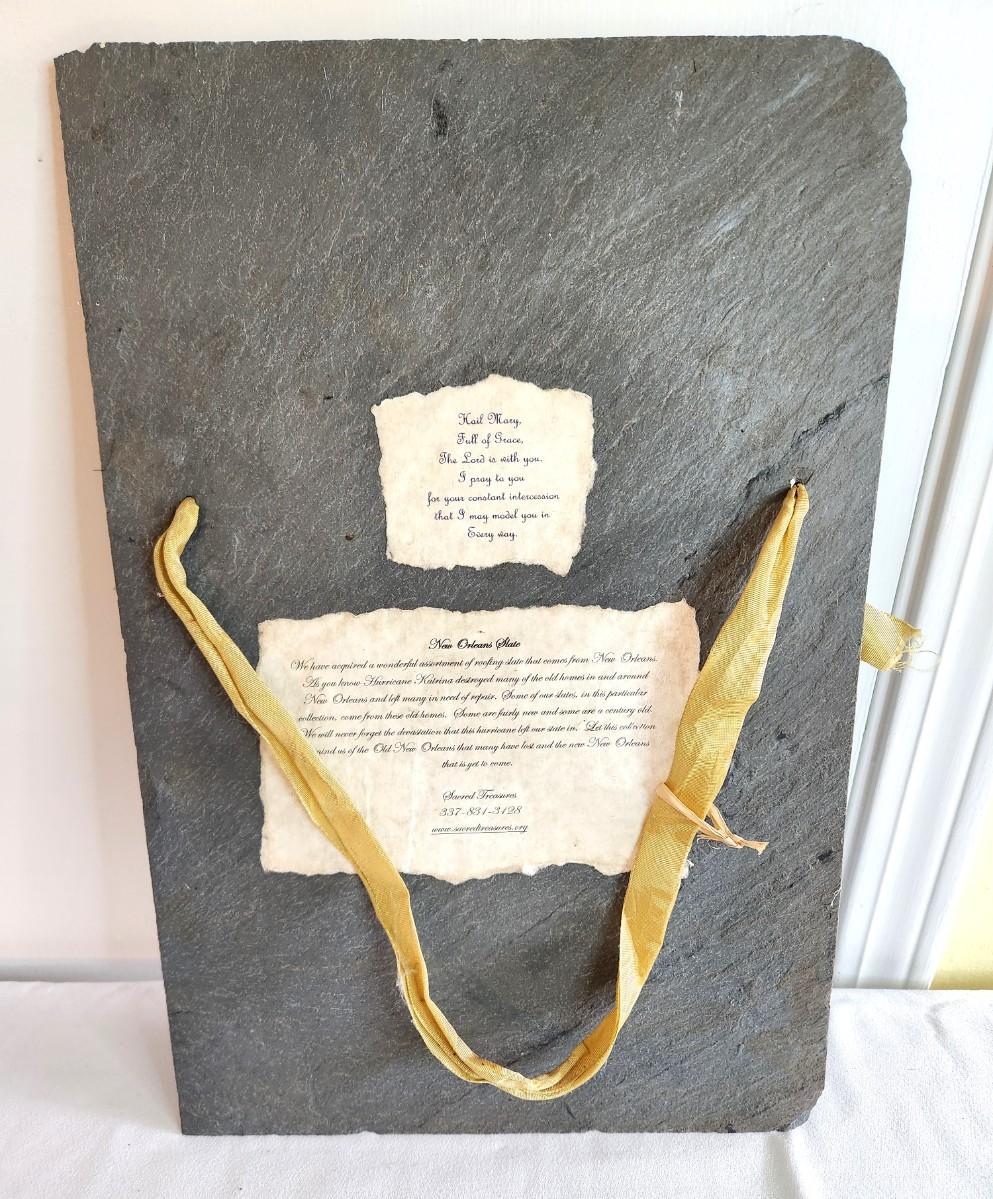 Hail Mary,
Full of Grace,
The Lord is with you.
I pray to you
for your constant intercession
that I may model you in
Every way.
New Orleans Slate
We have acquired a wonderful assortment of roofing slate that comes from New Orleans.
As you know Hurricane Katrina destroyed many of the old homes in and around
New Orleans and left many in need of repair. Some of our slates, in this particular
collection, come from these old homes. Some are fairly new and some are a century old.
We will never forget the devastation that this hurricane left our state in. Let this collection
us of the Old New Orleans that many have lost and the new New Orleans
that is yet to come.
Sacred Treasures
337-831-3128
www.sacredtreasures.org